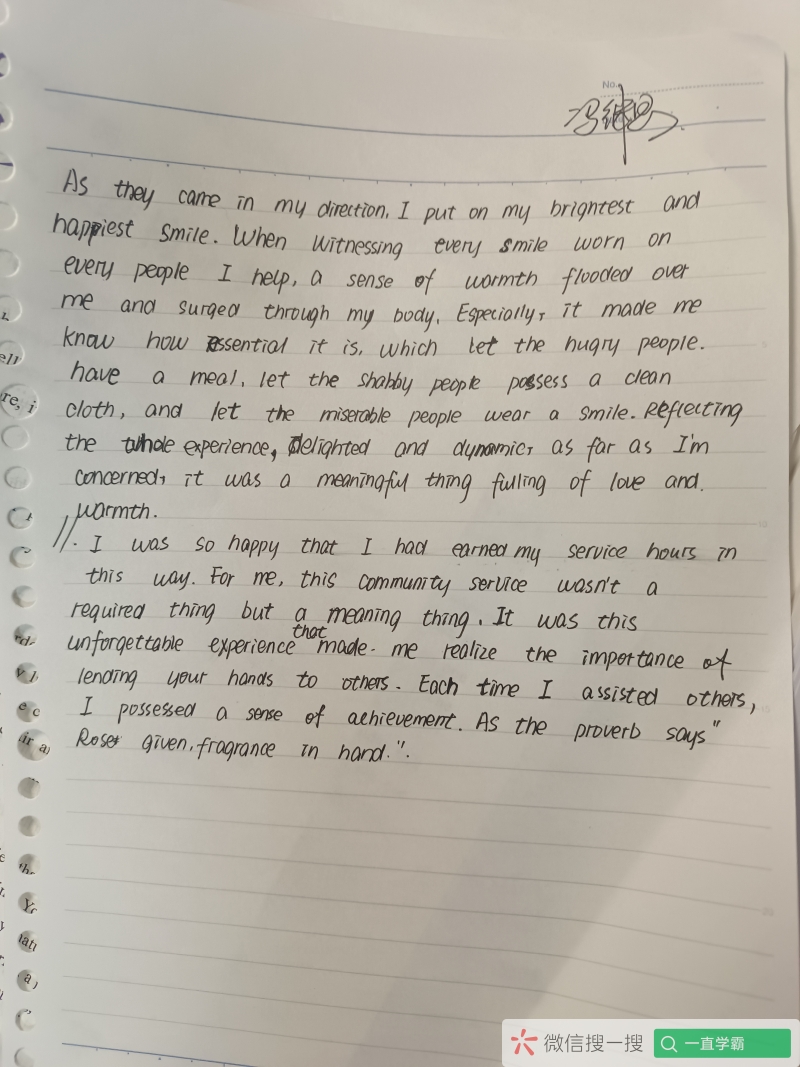 No.
As they came in my direction, I put on my brightest and
happiest smile. When witnessing every smile worn on
every people I help, a sense of warmth flooded over
me and surged through my body. Especially, it made me
know how essential it is, which let the hugry people.
have a meal, let the shabby people possess a clean
cloth, and let the miserable people wear a smile. Reflecting
the whole experience, Delighted and dynamic, as far as I'm
concerned, it was a meaningful thing fulling of love and.
warmth.
I was so happy that I had earned my service hours in
this way. For me, this community service wasn't a
required thing but a meaning thing. It was this
unforgettable experience that made me realize the importance of
lending your hands to others. Each time I assisted others,
I possessed a sense of achievement. As the proverb says"
Roses given, fragrance in hand.".
微信搜一搜
一直学霸